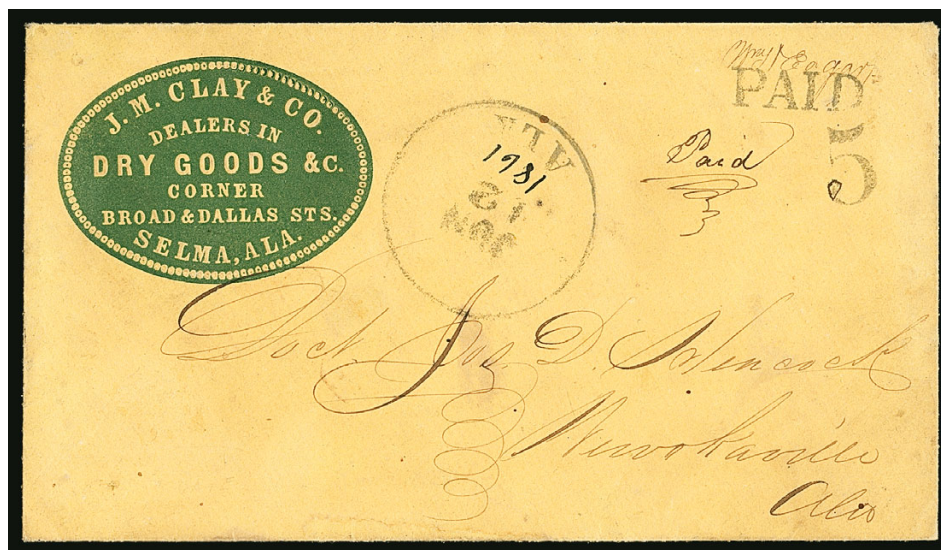 J. M. CLAY & CO.
DEALERS IN
DRY GOODS &C.
CORNER
BROAD & DALLAS STS.
SELMA, ALA.
ALA
1861
21
PAID
5
Paid
Doct. Jos. D. Hencock
Ala